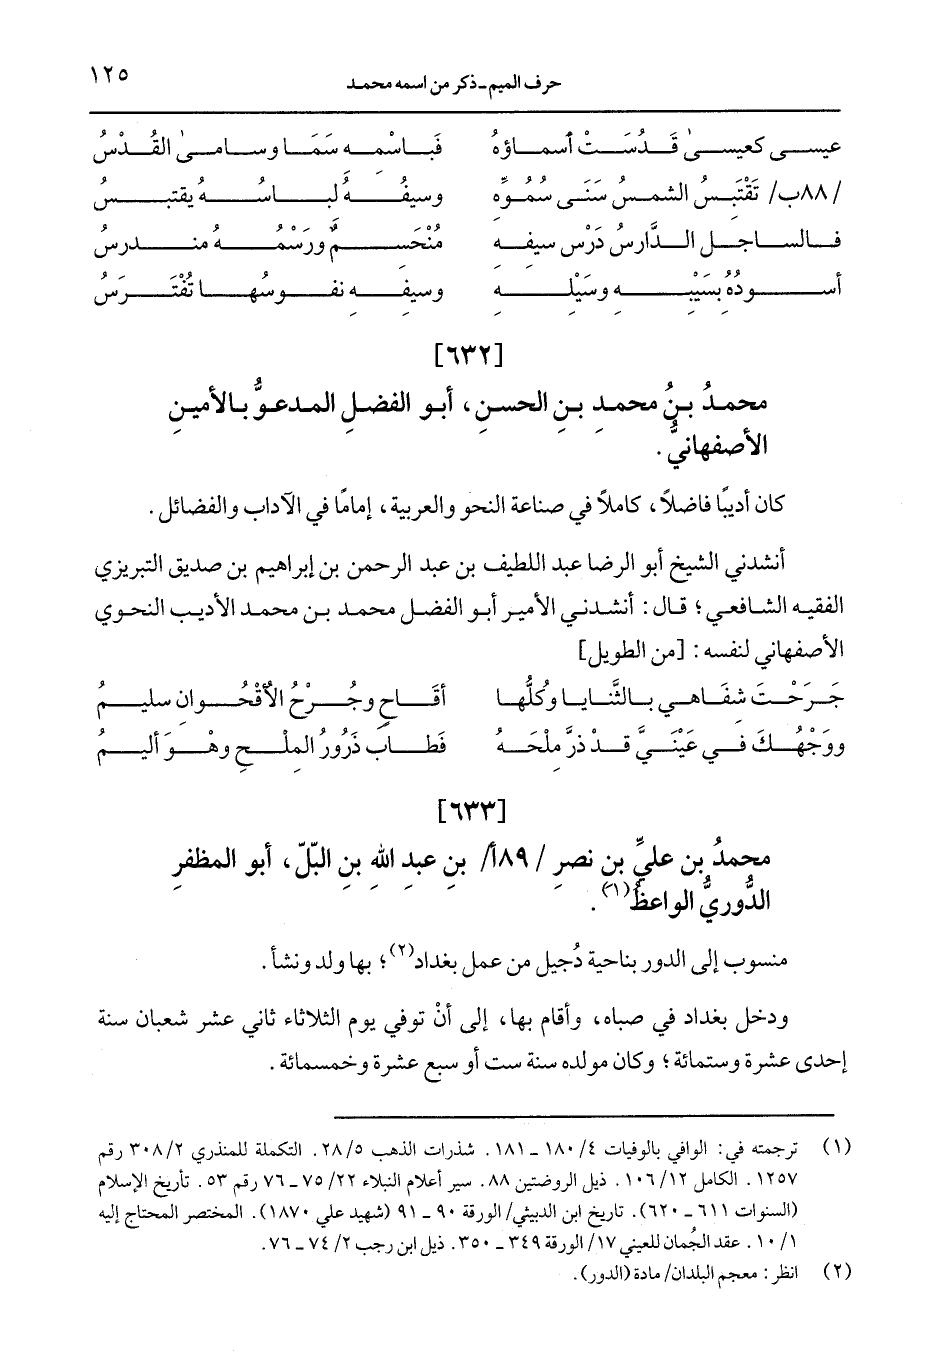 حرف الميم ـ ذكر من اسمه محمد ١٢٥
عيسى كعيسىٰ قَدُسَتْ أسماؤهُ فَبِاسْمِهِ سَمَا وسامىٰ القُدْسُ
/٨٨ب/ تَقْتَبِسُ الشمسُ سَنَى سُمُوِّه وسيفُهُ لُبَاسُهُ يقتبسُ
فالساجل الدَّارسُ دَرْس سيفِهِ مُنْحَسِمٌ وَرَسْمُهُ مندرسُ
أسودُهُ بسَيْبِهِ وسَيْلِهِ وسيفِهِ نفوسُها تُفْتَرَسُ
[٦٣٢]
محمدُ بنُ محمدِ بنِ الحسنِ، أبو الفضلِ المدعوُّ بالأمينِ
الأصفهانيُّ.
كان أديبًا فاضلاً، كاملاً في صناعة النحو والعربية، إمامًا في الآداب والفضائل.
أنشدني الشيخ أبو الرضا عبد اللطيف بن عبد الرحمن بن إبراهيم بن صديق التبريزي
الفقيه الشافعي؛ قال: أنشدني الأمير أبو الفضل محمد بن محمد الأديب النحوي
الأصفهاني لنفسه: [من الطويل]
جَرَحْتَ شفاهي بالثَّنايا وكُلُّها أقَاحٍ وجُرْحُ الأُقْحُوانِ سليمُ
ووَجْهُكَ في عَيْنَيَّ قدْ ذرَّ مِلْحَهُ فَطابَ ذَرُورُ المِلْحِ وهْوَ أليمُ
[٦٣٣]
محمدُ بن عليِّ بن نصرِ /٨٩أ/ بنِ عبدِ اللهِ بنِ البّلّ، أبو المظفرِ
الدُّوريُّ الواعظُ(١).
منسوب إلى الدور بناحية دُجيل من عمل بغداد(٢)؛ بها ولد ونشأ.
ودخل بغداد في صباه، وأقام بها، إلى أنْ توفي يوم الثلاثاء ثاني عشر شعبان سنة
إحدى عشرة وستمائة؛ وكان مولده سنة ست أو سبع عشرة وخمسمائة.
(١) ترجمته في: الوافي بالوفيات ٤/ ١٨٠ ـ ١٨١. شذرات الذهب ٥/ ٢٨. التكملة للمنذري ٢/ ٣٠٨ رقم
١٢٥٧. الكامل ١٢/ ١٠٦. ذيل الروضتين ٨٨. سير أعلام النبلاء ٢٢/ ٧٥ ـ ٧٦ رقم ٥٣. تأريخ الإسلام
(السنوات ٦١١ ـ ٦٢٠). تاريخ ابن الدبيثي/ الورقة ٩٠ ـ ٩١ (شهيد علي ١٨٧٠). المختصر المحتاج إليه
١/ ١٠. عقد الجُمان للعيني ١٧/ الورقة ٣٤٩ ـ ٣٥٠. ذيل ابن رجب ٢/ ٧٤ ـ ٧٦.
(٢) انظر: معجم البلدان/ مادة (الدور).